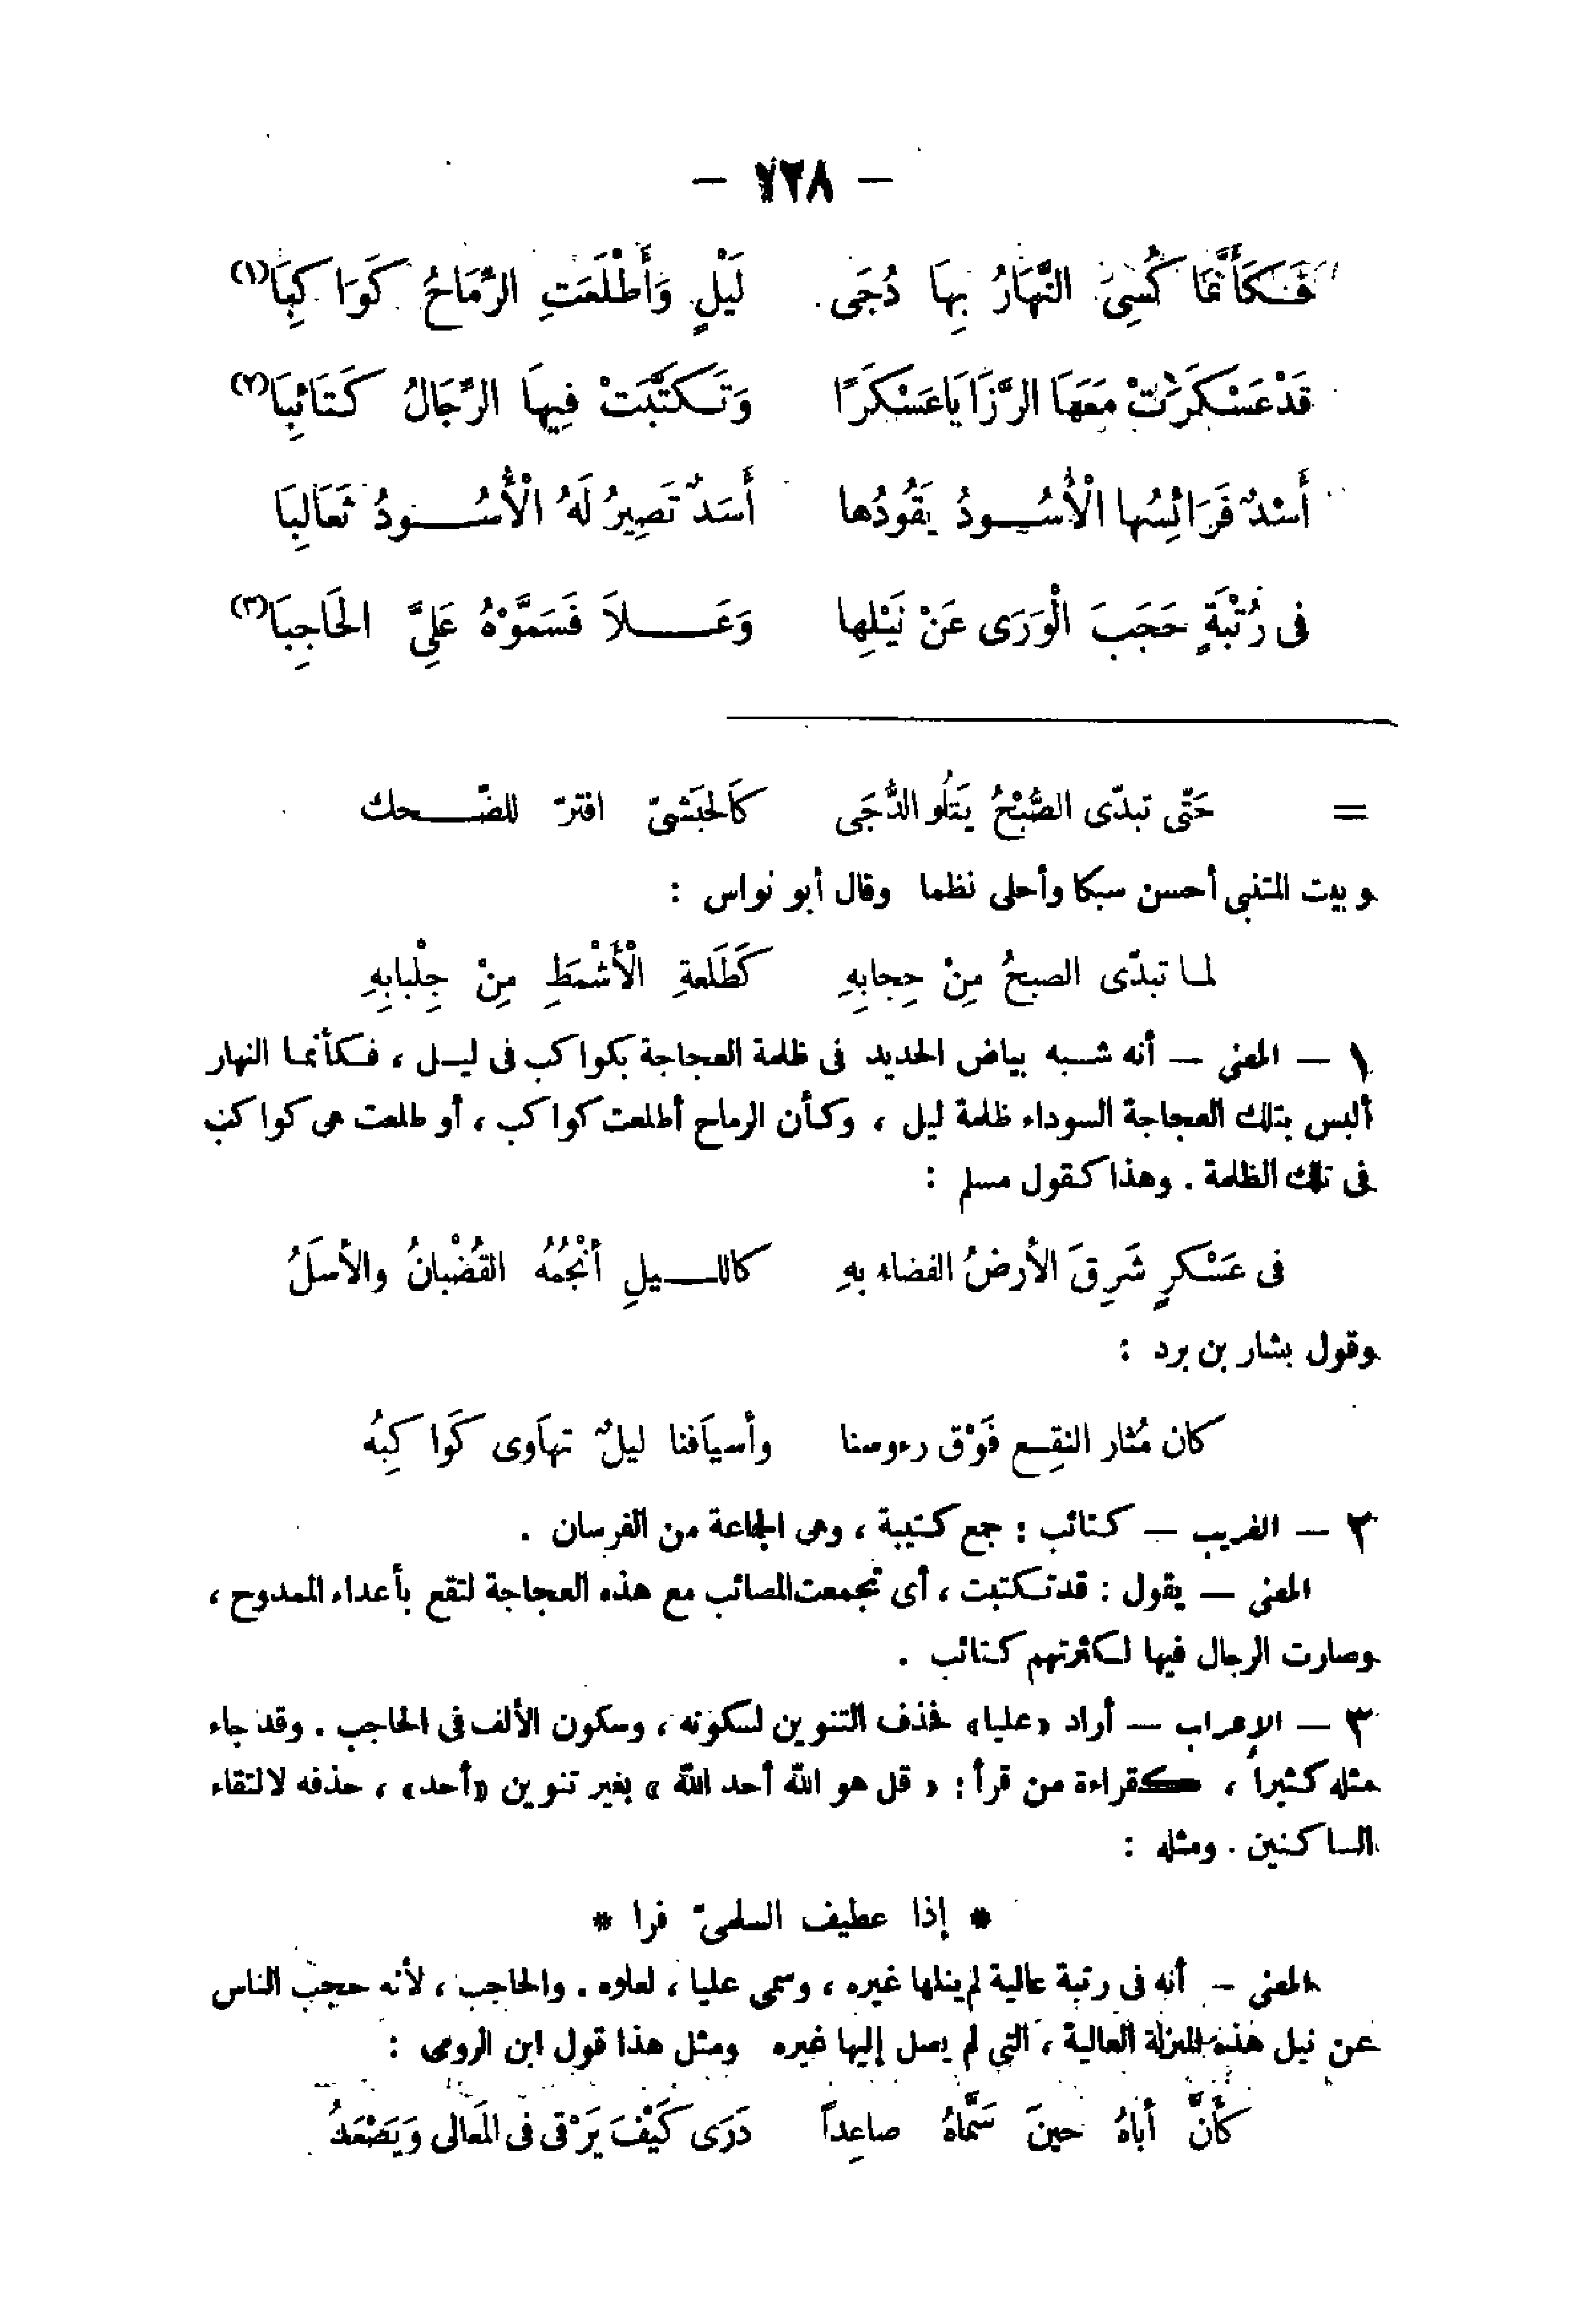 — ٧٢٨ —
فَكَأَنَّمَا كُسِىَ النَّهَارُ بِهَا دُجَى لَيْلٍ وَأَطْلَعَتِ الرِّمَاحُ كَوَاكِبَا(١)
قَدْ عَسْكَرَتْ مَعَهَا الرَّزَايَا عَسْكَرًا وَتَكَتَّبَتْ فِيهَا الرِّجَالُ كَتَائِبَا(٢)
أَسْدٌ فَرَائِسُها الْأُسُودُ يَقُودُها أَسَدٌ تَصِيرُ لَهُ الْأُسُودُ ثَعَالِبَا
فى رُتْبَةٍ حَجَبَ الْوَرَى عَنْ نَيْلِها وَعَلاَ فَسَمَّوْهُ عَلِىَّ الحَاجِبَا(٣)
= حَتّى تبدّى الصُّبْحُ يَتلُو الدُّجَى كَالحبَشىّ افترّ للضّحك
وبيت المتنبى أحسن سبكا وأحلى نظما وقال أبو نواس :
لما تبدّى الصبحُ مِنْ حِجابِهِ كَطَلَعةِ الْأَشْمَطِ مِنْ جِلْبابِهِ
١ — المعنى — أنه شبه بياض الحديد فى ظلمة العجاجة بكواكب فى ليل ، فكأنما النهار
ألبس بتلك العجاجة السوداء ظلمة ليل ، وكأن الرماح أطلعت كواكب ، أو طلعت هى كواكب
فى تلك الظلمة . وهذا كقول مسلم :
فى عَسْكرٍ شَرِقَ الأرضُ الفضاء بهِ كالليلِ أنْجُمُهُ القُضْبانُ والأسَلُ
وقول بشار بن برد :
كان مُثار النقِع فَوْق رءوسنا وأسيَافنا ليلٌ تهاَوى كَواكِبُه
٢ — الغريب — كتائب : جمع كتيبة ، وهى الجماعة من الفرسان .
المعنى — يقول : قد تكتبت ، أى تجمعت المصائب مع هذه العجاجة لتقع بأعداء الممدوح ،
وصارت الرجال فيها لكثرتهم كتائب .
٣ — الإعراب — أراد «عليا» فحذف التنوين لسكونه ، وسكون الألف فى الحاجب . وقد جاء
مثله كثيرا ، كقراءة من قرأ : « قل هو الله أحد الله » بغير تنوين «أحد» ، حذفه لالتقاء
الساكنين . ومثله :
* إذا عطيف السلمىّ فرا *
المعنى — أنه فى رتبة عالية لم ينلها غيره ، وسمى عليا ، لعلوه . والحاجب ، لأنه حجب الناس
عن نيل هذه المنزلة العالية ، التى لم يصل إليها غيره ومثل هذا قول ابن الرومى :
كأنَّ أباهُ حينَ سَمَّاهُ صاعِداً دَرَى كَيْفَ يَرْقى فى المَعالى وَيَصْعَدُ